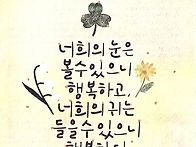 너희의 눈은
볼 수 있으니
행복하고,
너희의 귀는
들을 수 있으니
행복하다